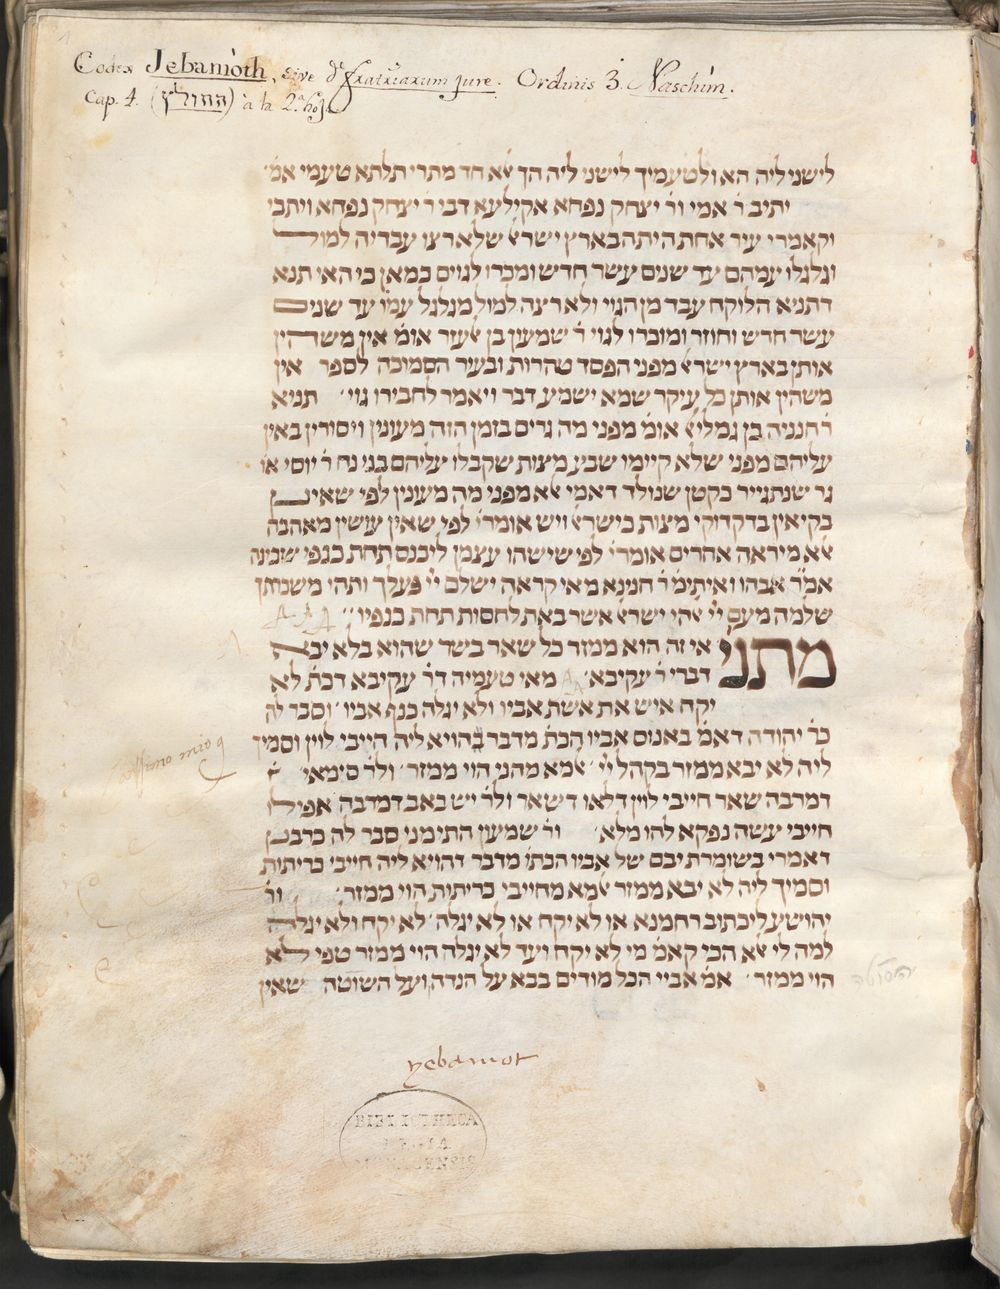 Codex Jebamóth, sive de fratriarum jure. Ordinis 3. Naschim.
Cap. 4. (החולץ) à la 2.ª hoj.
לישני ליה הא ולטעמיך לישני ליה הך אלא חד מתרי תלתא טעמי אמ׳
יתיב ר׳ אמי ור׳ יצחק נפחא אקילעא דבי ר׳ יצחק נפחא ויתבי
וקאמרי עיר אחת היתה בארץ ישראל שלא רצו עבדיה למול
וגלגלו עמהם עד שנים עשר חדש ומכרו לגוים כמאן כי האי תנא
דתניא הלוקח עבד מן הגוי ולא רצה למול מגלגל עמו עד שנים
עשר חדש וחוזר ומוכרו לגוי ר׳ שמעון בן אלעזר אומ׳ אין משהין
אותן בארץ ישראל מפני הפסד טהרות ובעיר הסמוכה לספר אין
משהין אותן כל עיקר שמא ישמע דבר ויאמר לחבירו גוי׳ תניא
ר׳ חנניה בן גמליאל אומ׳ מפני מה גרים בזמן הזה מעונין ויסורין באין
עליהם מפני שלא קיימו שבע מצות שקבלו עליהם בני נח ר׳ יוסי או׳
גר שנתגייר כקטן שנולד דאמי אלא מפני מה מעונין לפי שאינן
בקיאין בדקדוקי מצות כישראל ויש אומרי׳ לפי שאין עושין מאהבה
אלא מיראה אחרים אומרי׳ לפי ששיהו עצמן ליכנס תחת כנפי שכינה
אמ״ר אבהו ואיתימ׳ ר׳ חנינא מאי קראה ישלם י״י פעלך ותהי משכורתך
שלמה מעם י״י אלהי ישראל אשר באת לחסות תחת כנפיו׳׳
מתני׳ אי זה הוא ממזר כל שאר בשר שהוא בלא יבא
דברי ר׳ עקיבא׳ מאי טעמיה דר׳ עקיבא דכת׳ לא
יקח איש את אשת אביו ולא יגלה כנף אביו׳ וסבר לה
כר׳ יהודה דאמ׳ באנוס אביו הכת׳ מדבר דהויא ליה חייבי לוין וסמיך
ליה לא יבא ממזר בקהל י״י׳ אלמא מהני הוי ממזר׳ ולר׳ סימאי׳
דמרבה שאר חייבי לוין דלאו דשאר ולר׳ ישבאב דמרבה אפילו
חייבי עשה נפקא להו מלא׳ ור׳ שמעון התימני סבר לה כרבנן
דאמרי בשומרת יבם של אביו הכתו׳ מדבר דהויא ליה חייבי כריתות
וסמיך ליה לא יבא ממזר אלמא מחייבי כריתות הוי ממזר׳ ור׳
יהושע ליכתוב רחמנא או לא יקח או לא יגלה׳ לא יקח ולא יגלה
למה לי אלא הכי קאמ׳ מי לא יקח ועד לא יגלה הוי ממזר טפי לא
הוי ממזר׳ אמ׳ אביי הכל מודים בבא על הנדה ועל השוטה שאין
הסוטה
yebamot
BIBLIOTHECA
REGIA
MONACENSIS